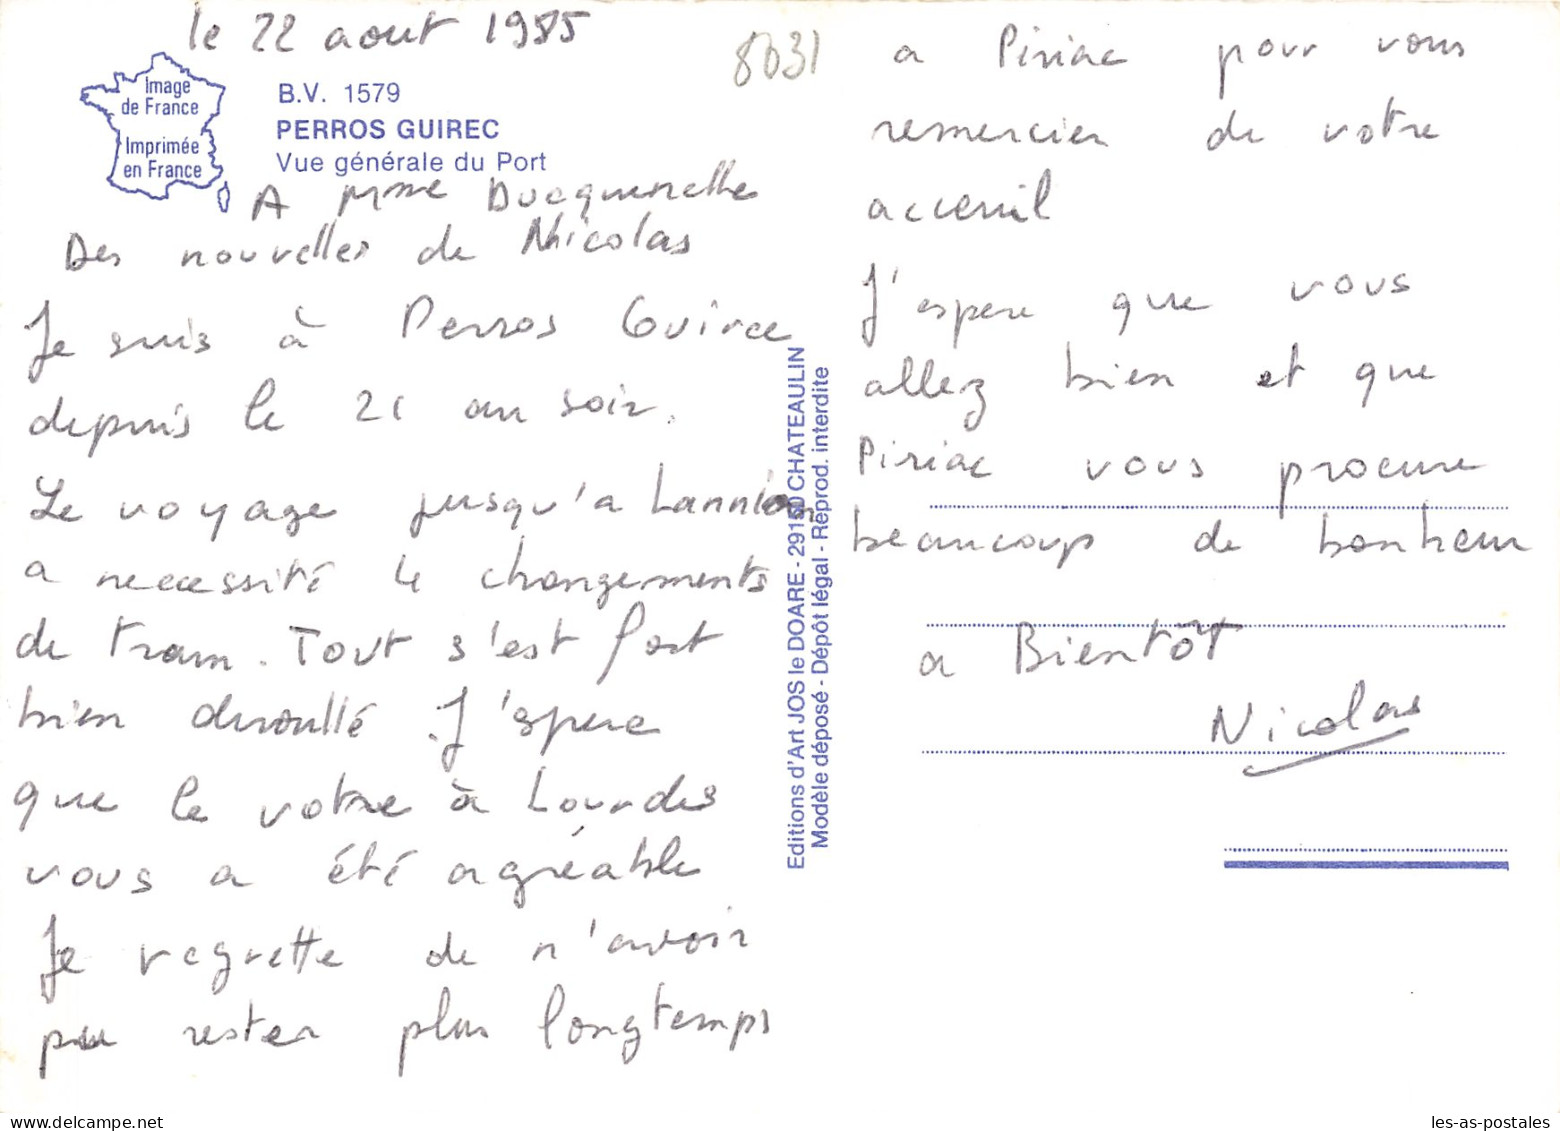 le 22 aout 1985
8031
Image
de France
Imprimée
en France
B.V. 1579
PERROS GUIREC
Vue générale du Port
A Mme Ducquenelle
Des nouvelles de Nicolas
Je suis à Perros Guirec
depuis le 21 au soir.
Le voyage jusqu'a Lannion
a necessité 4 changements
de tram. Tout s'est fort
bien deroullé. J'espere
que le votre à Lourdes
vous a été agréable
Je regrette de n'avoir
pu rester plus longtemps
Editions d'Art JOS le DOARE - 29150 CHATEAULIN
Modèle déposé - Dépôt légal - Réprod. interdite
a Piriac pour vous
remercier de votre
acceuil
J'espere que vous
allez bien et que
Piriac vous procure
beaucoup de bonheur
a Bientôt
Nicolas
les-as-postales